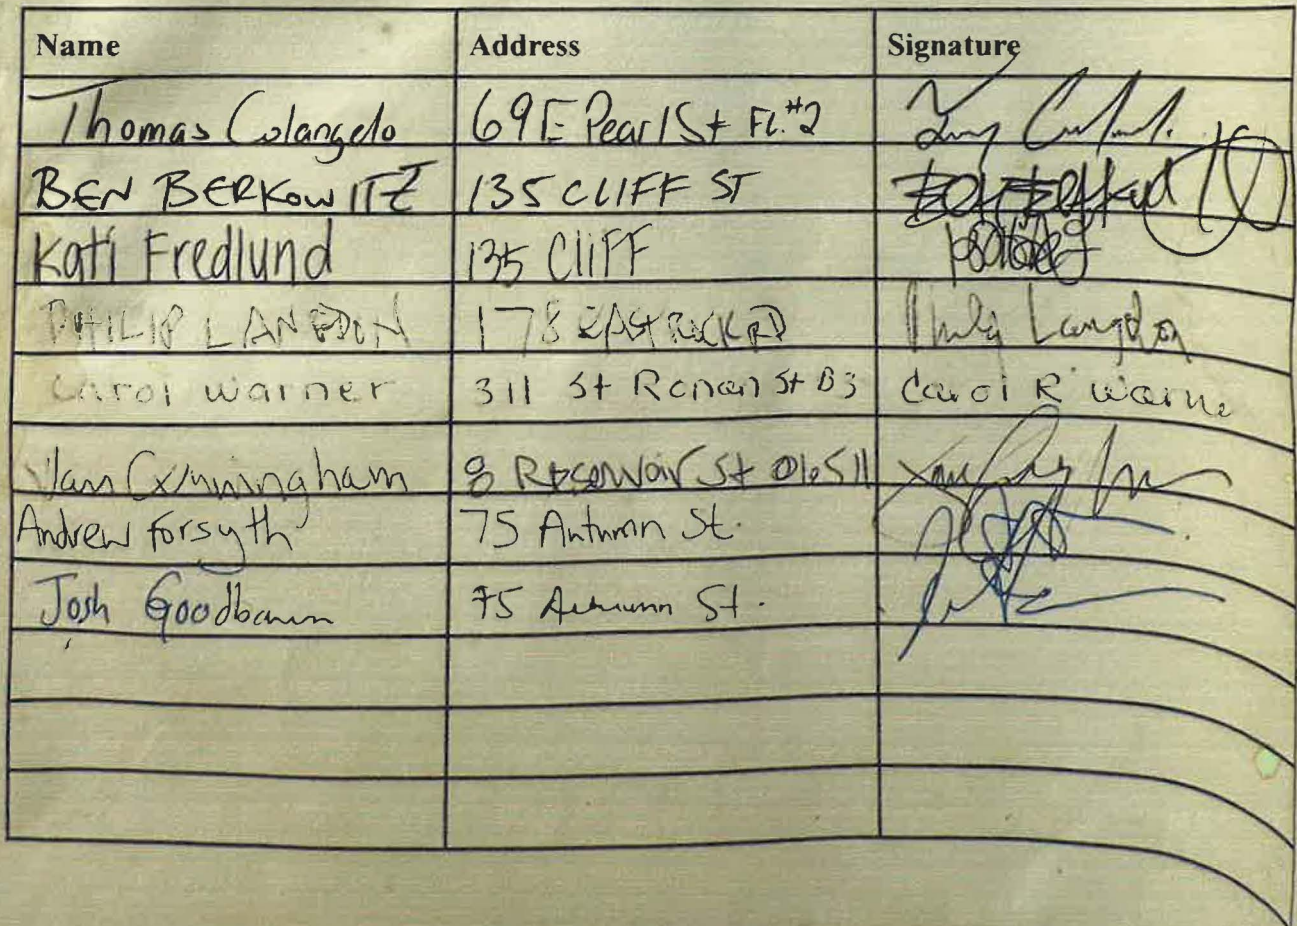 Name Address Signature
Thomas Colangelo 69 E Pearl St FL. #2
BEN BERKOWITZ 135 CLIFF ST
Kati Fredlund 135 CLIFF
PHILIP LANGDON 178 EAST ROCK RD Philip Langdon
Carol Warner 311 St Ronan St B3 Carol R Warne
Cunningham 8 Reservoir St 06511
Andrew Forsyth 75 Autumn St.
Josh Goodbaum 75 Autumn St.